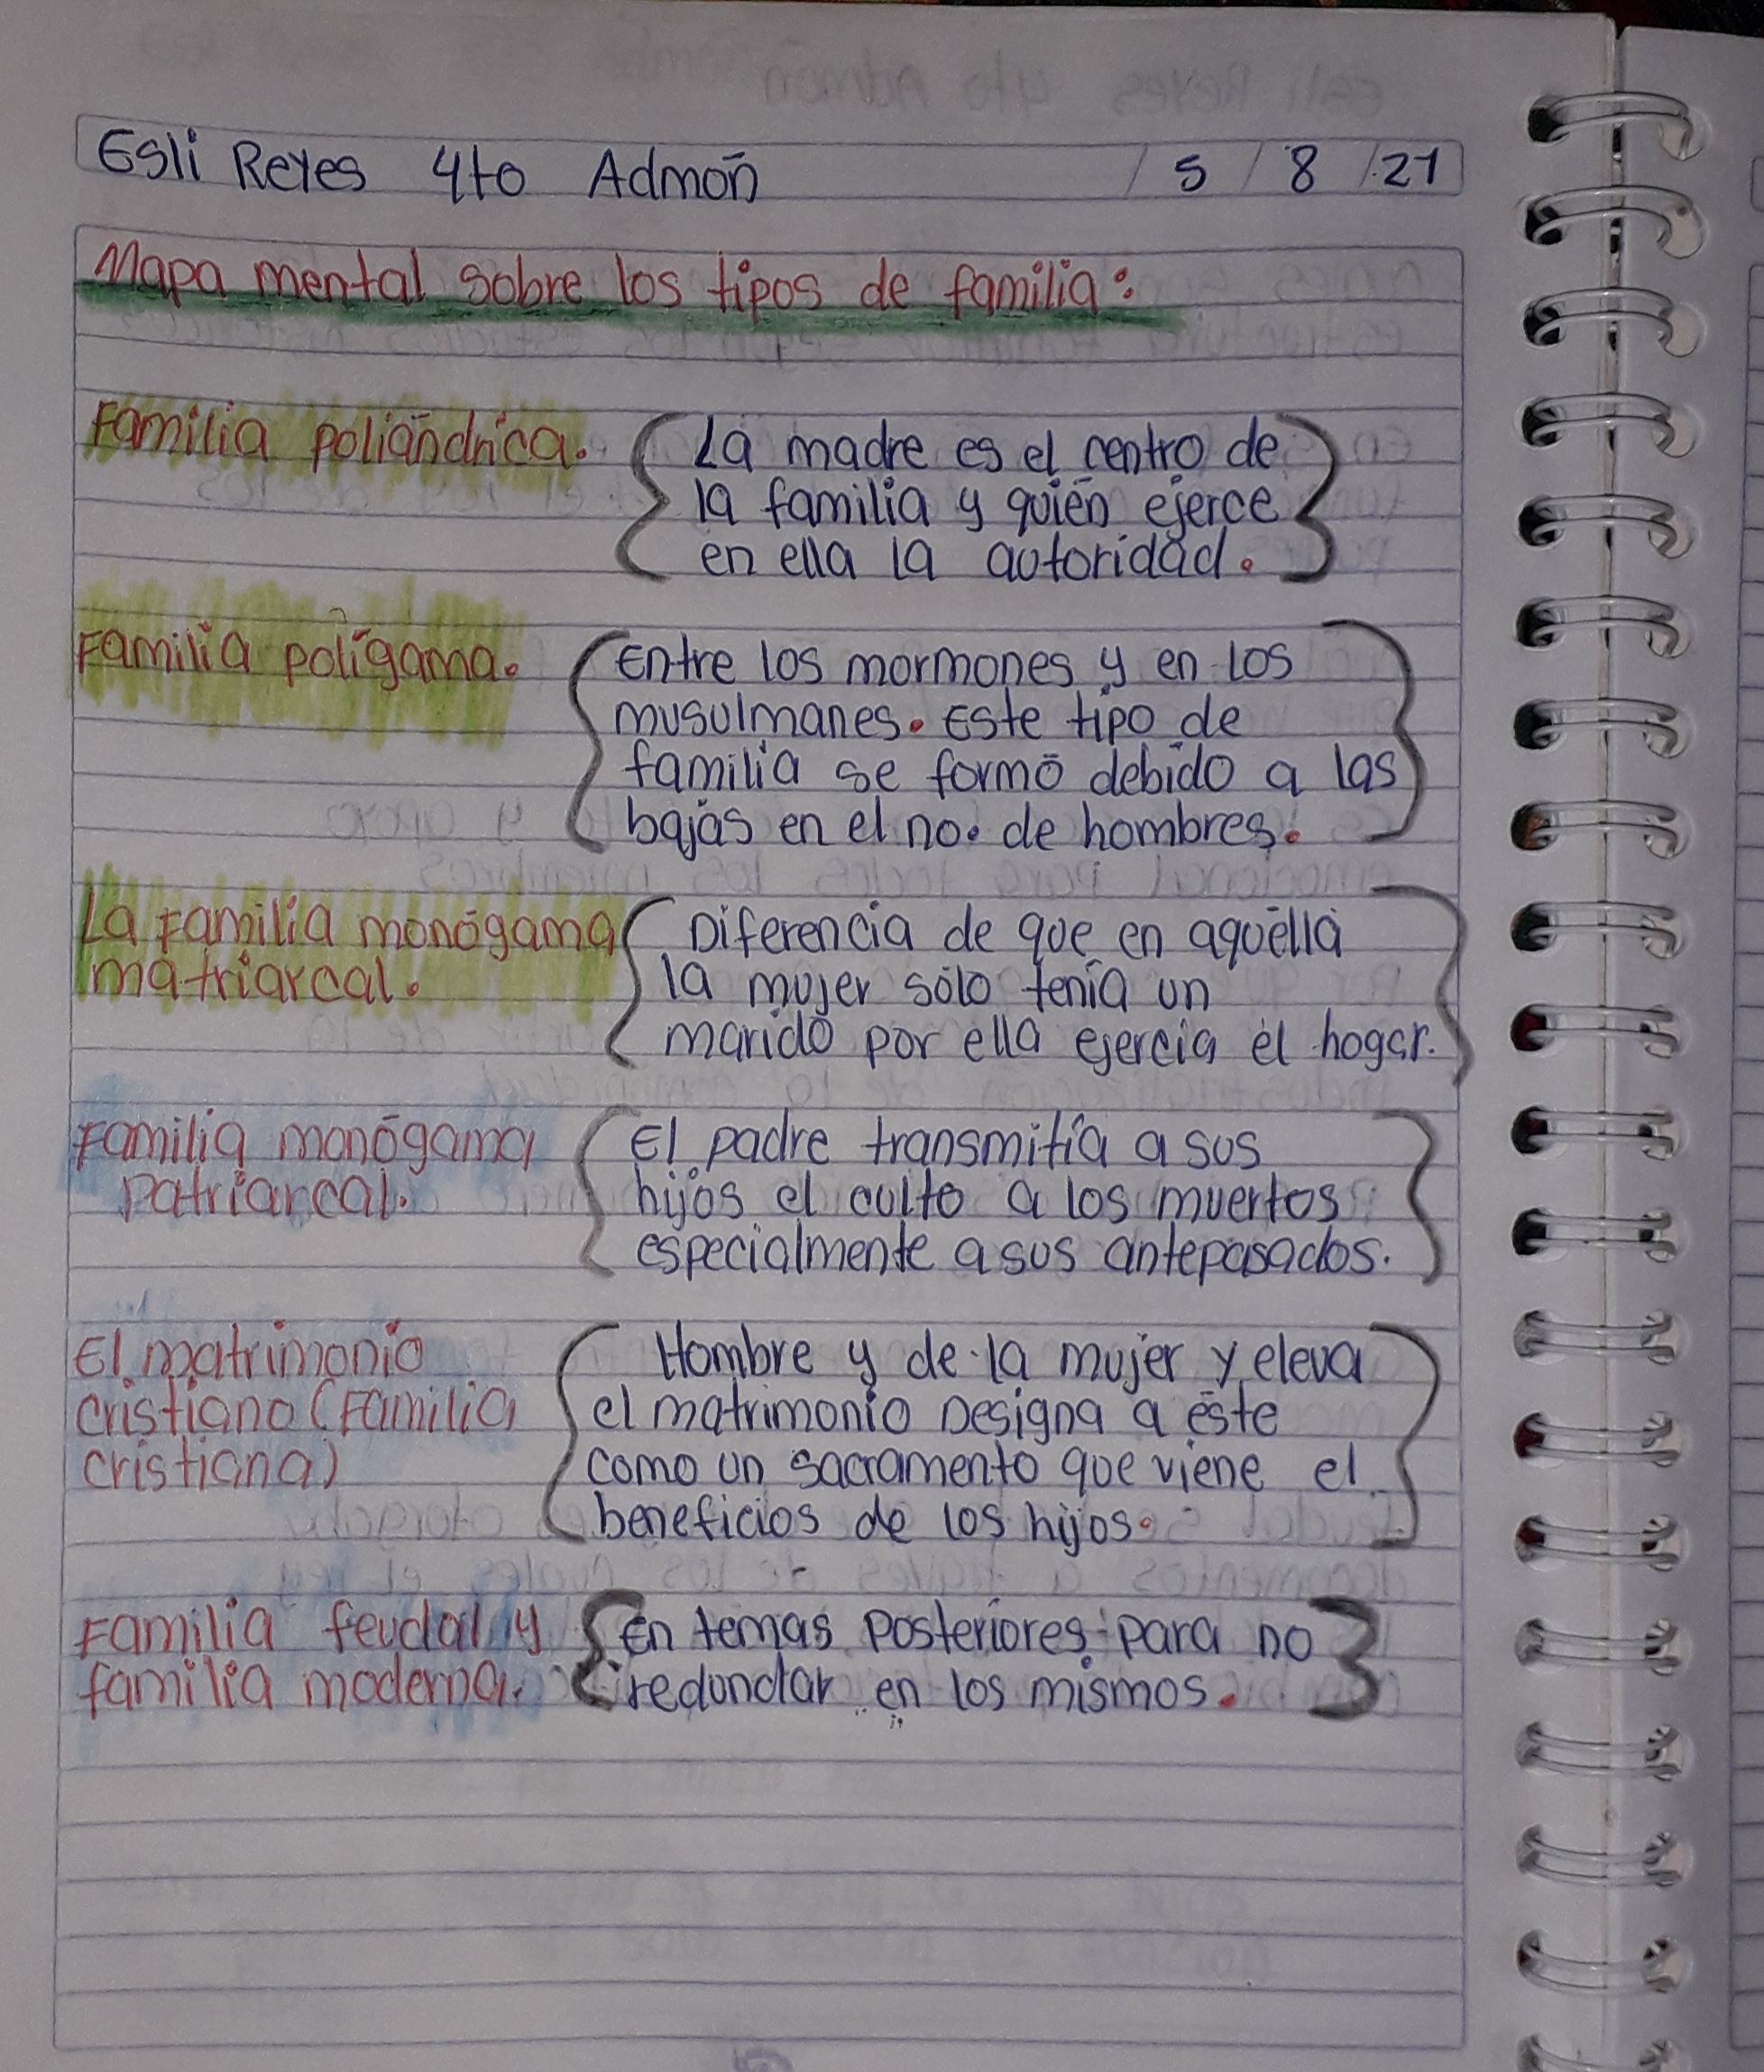 Esli Reyes 4to Admón / 5 / 8 / 21
Mapa mental sobre los tipos de familia:
Familia poliándrica. { La madre es el centro de
la familia y quién ejerce
en ella la autoridad. }
Familia polígama. { Entre los mormones y en los
musulmanes. Este tipo de
familia se formó debido a las
bajas en el no. de hombres. }
La Familia monógama
matriarcal. { Diferencia de que en aquélla
la mujer sólo tenía un
marido por ella ejercia el hogar. }
Familia monógama
patriarcal. { El padre transmitía a sus
hijos el culto a los muertos
especialmente a sus antepasados. }
El matrimonio
cristiano (Familia
cristiana) { Hombre y de la mujer y eleva
el matrimonio Designa a éste
como un sacramento que viene el
beneficios de los hijos. }
Familia feudal y
familia moderna. { En temas Posteriores para no
redundar en los mismos. }